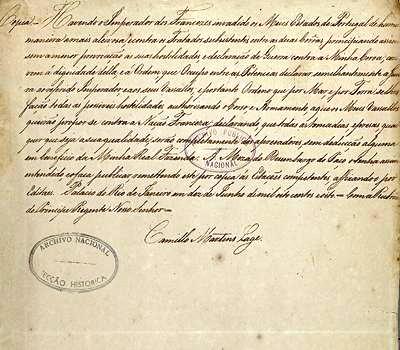 Copia = Havendo o Imperador dos Francezes invadido os Meus Estados de Portugal de huma
maneira a mais aleivosa, e contra os Tratados subsistentes entre as duas Corôas, principiando assim
sem a menor provocação as suas hostilidades, e declaração de Guerra contra a Minha Corôa; con
vem á dignidade della, e á Ordem, que Occupo entre as Potencias declarar semelhantemente a Guer
ra ao referido Imperador, e aos seus Vassallos, e portanto Ordeno que por Mar, e por Terra se lhes
fação todas as possiveis hostilidades, authorisando o Corso, e Armamento, a que os Meus Vassallos
queirão propor-se contra a Nação Franceza; declarando que todas as tomadias, e prezas, qual
quer que seja a sua qualidade, serão completamente dos aprezadores, sem deducção alguma
em beneficio da Minha Real Fazenda. A Meza do Desembargo do Paço o tenha assim
entendido, e o faça publico, remettendo este por copia ás Estações competentes, e affixando-o por
Editaes. Palacio do Rio de Janeiro em dez de Junho de mil oito centos e oito = Com a Rubrica
do Principe Regente Nosso Senhor =
Camillo Martins Lage.
ARCHIVO PUBLICO
NACIONAL
ARCHIVO NACIONAL
SECÇÃO HISTORICA